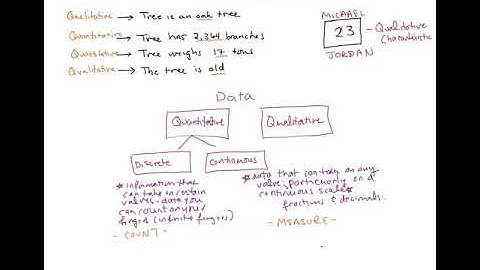 Qualitative → Tree is an oak tree
Quantitative → Tree has 2,344 branches
Quantitative → Tree weighs 17 tons
Qualitative → The tree is old
MICHAEL
23
JORDAN
- Qualitative
Characteristic
Data
Quantitative
Qualitative
Discrete
continuous
* Information that
can take on certain
values - data you
can count on your
fingers (infinite fingers)
- COUNT -
* data that can take on any
value, particularly on a
continuous scale
fractions & decimals.
- MEASURE -